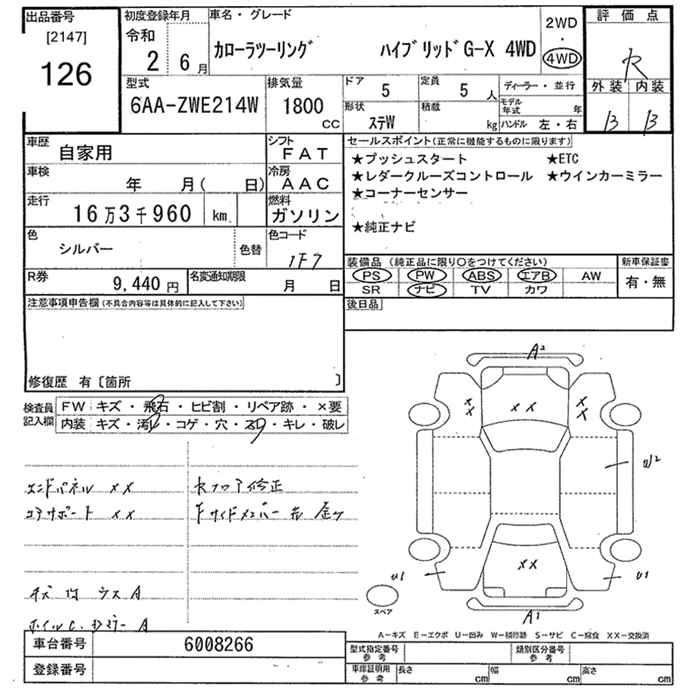 出品番号
[2147]
126
初度登録年月
令和
2 6月
車名・グレード
カローラツーリング ハイブリッドG-X 4WD
2WD
・
4WD
評価点
R
外装 内装
B B
型式
6AA-ZWE214W
排気量
1800
CC
ドア
5
定員
5 人
ディーラー・並行
モデル年式 年
形状
ステW
積載
kg
ハンドル 左・右
車歴
自家用
シフト
FAT
車検
年 月( 日)
冷房
AAC
走行
16万3千960 km
燃料
ガソリン
色
シルバー
色替
色コード
1F7
R券
9,440 円
名変通知期限
月 日
セールスポイント(正常に機能するものに限ります)
★プッシュスタート ★ETC
★レダークルーズコントロール ★ウインカーミラー
★コーナーセンサー
★純正ナビ
装備品(純正品に限り○をつけてください)
PS PW ABS エアB AW
SR ナビ TV カワ
新車保証書
有・無
注意事項申告欄(不具合内容等は具体的に記入して下さい)
後日品
修復歴 有〔箇所 〕
検査員
記入欄
FW キズ・飛石・ヒビ割・リペア跡・×要
内装 キズ・汚レ・コゲ・穴・スレ・キレ・破レ
エンドパネル ×× トランクフロア修正
コアサポート ××
キズ 凹 ウスA
A2
××
××
××
U2
××
U1
U1
A1
スペア
A-キズ E-エクボ U-凹み W-補修跡 S-サビ C-腐食 XX-交換済
車台番号
6008266
登録番号
型式指定番号
参考
類別区分番号
参考
車庫証明用
参考
長さ cm 幅 cm 高さ cm